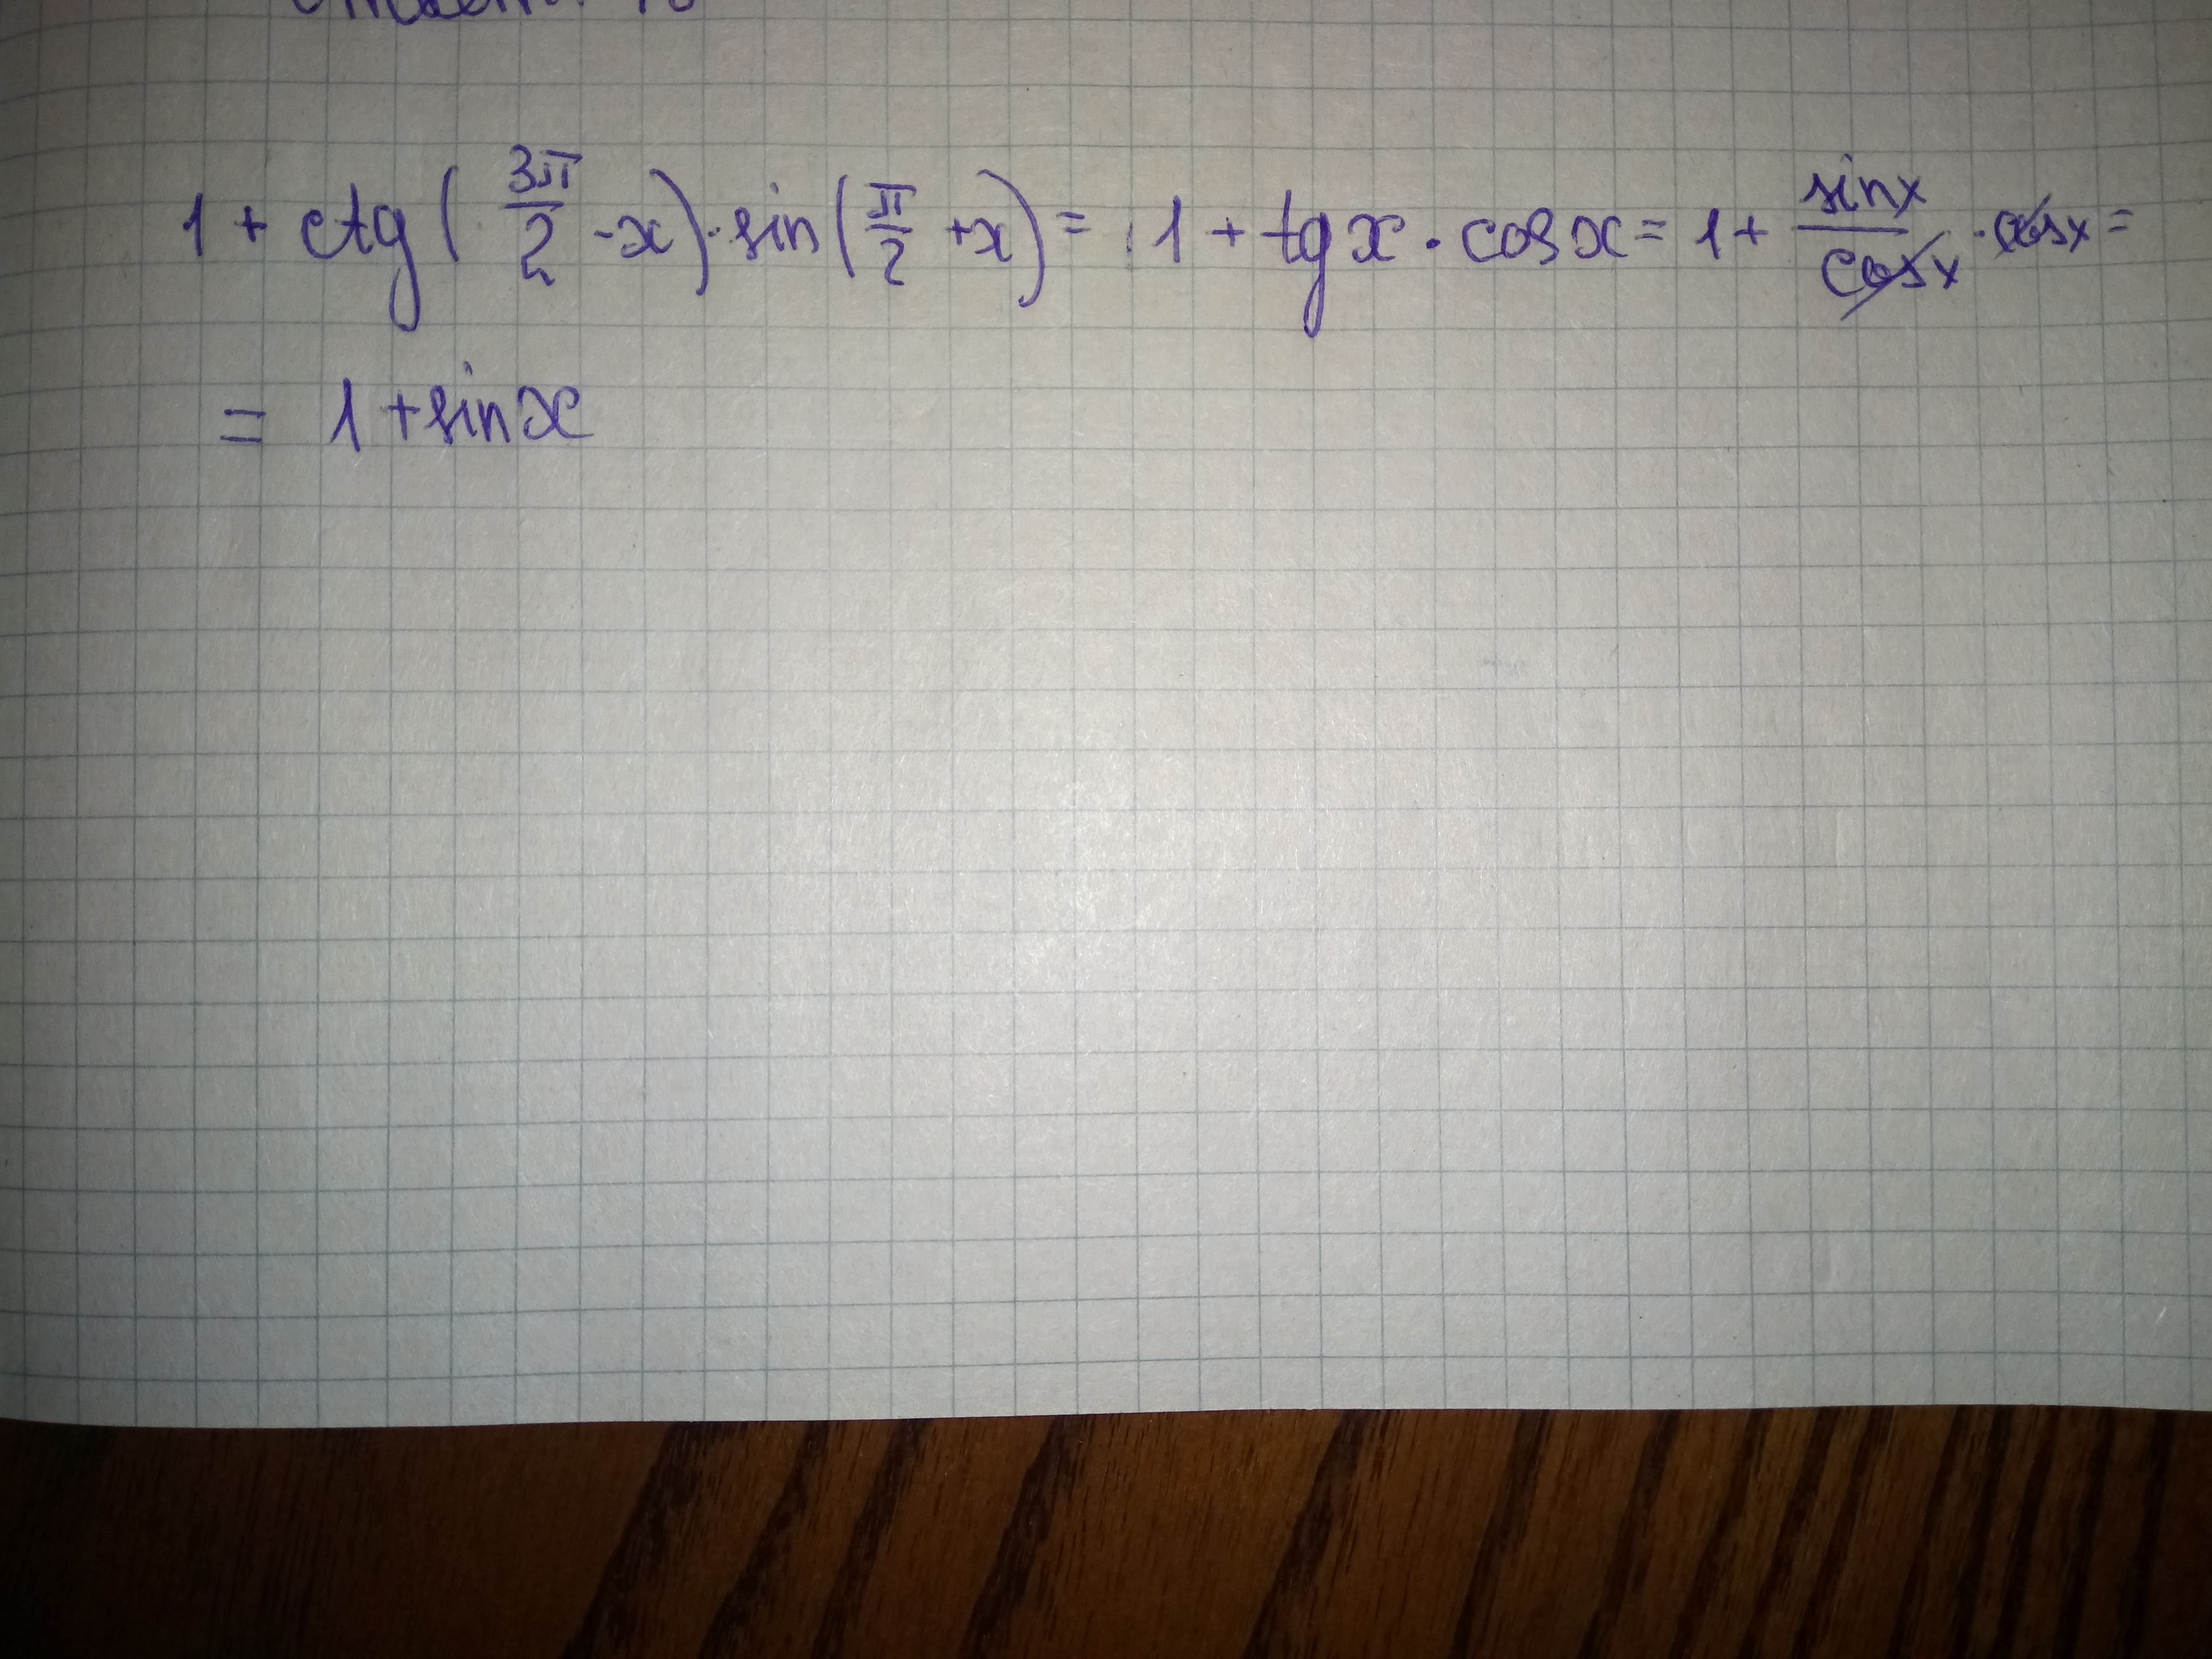 1 + ctg(3π/2 - x) · sin(π/2 + x) = 1 + tg x · cos x = 1 + sin x/cos x · cos x =
= 1 + sin x